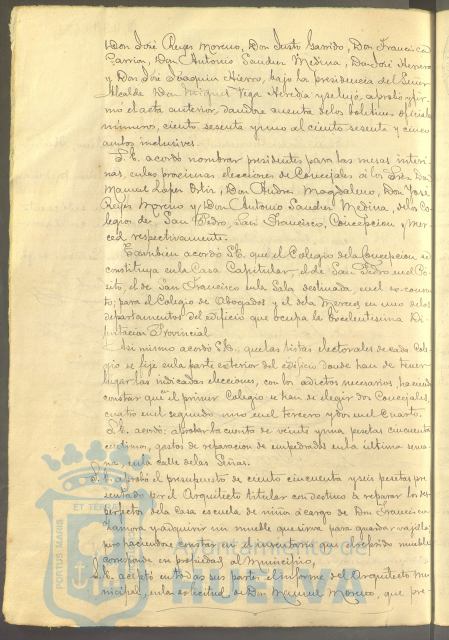 Don José Reyes Moreno, Don Justo Garrido, Don Francisco
Garrion, Don Antonio Sanchez Medina, Don José Herrero
y Don José Joaquin Hierro, bajo la presidencia del Señor
Alcalde Don Vega Heredia y se leyó, aprobó y fir-
mó el acta anterior, dandose cuenta de los boletines oficiales
número, ciento sesenta y uno al ciento sesenta y cinco
ambos inclusives.
S.E. acordó nombrar presidentes para las mesas interi-
nas, en las proximas elecciones de Concejales á los Sres. Don
Manuel Lopez Ortiz, Don Andres Magdaleno, Don José
Reyes Moreno y Don Antonio Sanchez Medina, de los Co-
legios de San Pedro, San Francisco, Concepcion y Mer-
ced respectivamente.
Tambien acordó S.E. que el Colegio de la Concepcion se
constituya en la Casa Capitular, el de San Pedro en el Pó-
sito, el de San Francisco en la Sala destinada, en el ex-conven-
to, para el Colegio de Abogados y el de la Merced en uno de los
departamentos del edificio que ocupa la Excelentisima Di-
putacion Provincial.
Asi mismo acordó S.E. que las listas electorales de cada Cole-
gio se fije en la parte exterior del edificio donde han de tener
lugar las indicadas elecciones, con los edictos necesarios, haciendo
constar que el primer Colegio se han de elegir dos Concejales,
cuatro en el segundo uno en el tercero y dos en el cuarto.
S.E. acordó aprobar la cuenta de veinte y una pesetas cincuenta
centimos, gastos de reparacion de empedrados en la última sema-
na, en la calle de las Señas.
S.E. aprobó el presupuesto de ciento cincuenta y seis pesetas pre-
sentado por el Arquitecto titular con destino á reparar los des-
perfectos de la Casa escuela de niños á cargo de Don Francisco
Zamora y adquirir un mueble que sirva para guardar
pero haciendose constar en el inventario que el referido mueble
corresponde en propiedad al Municipio.
S.E. aceptó en todas sus partes el informe del Arquitecto mu-
nicipal, en la solicitud de Don Manuel Moreno, que pre-
PORTUS MARIS
ET TERRÆ
Ayuntamiento de
HUELVA